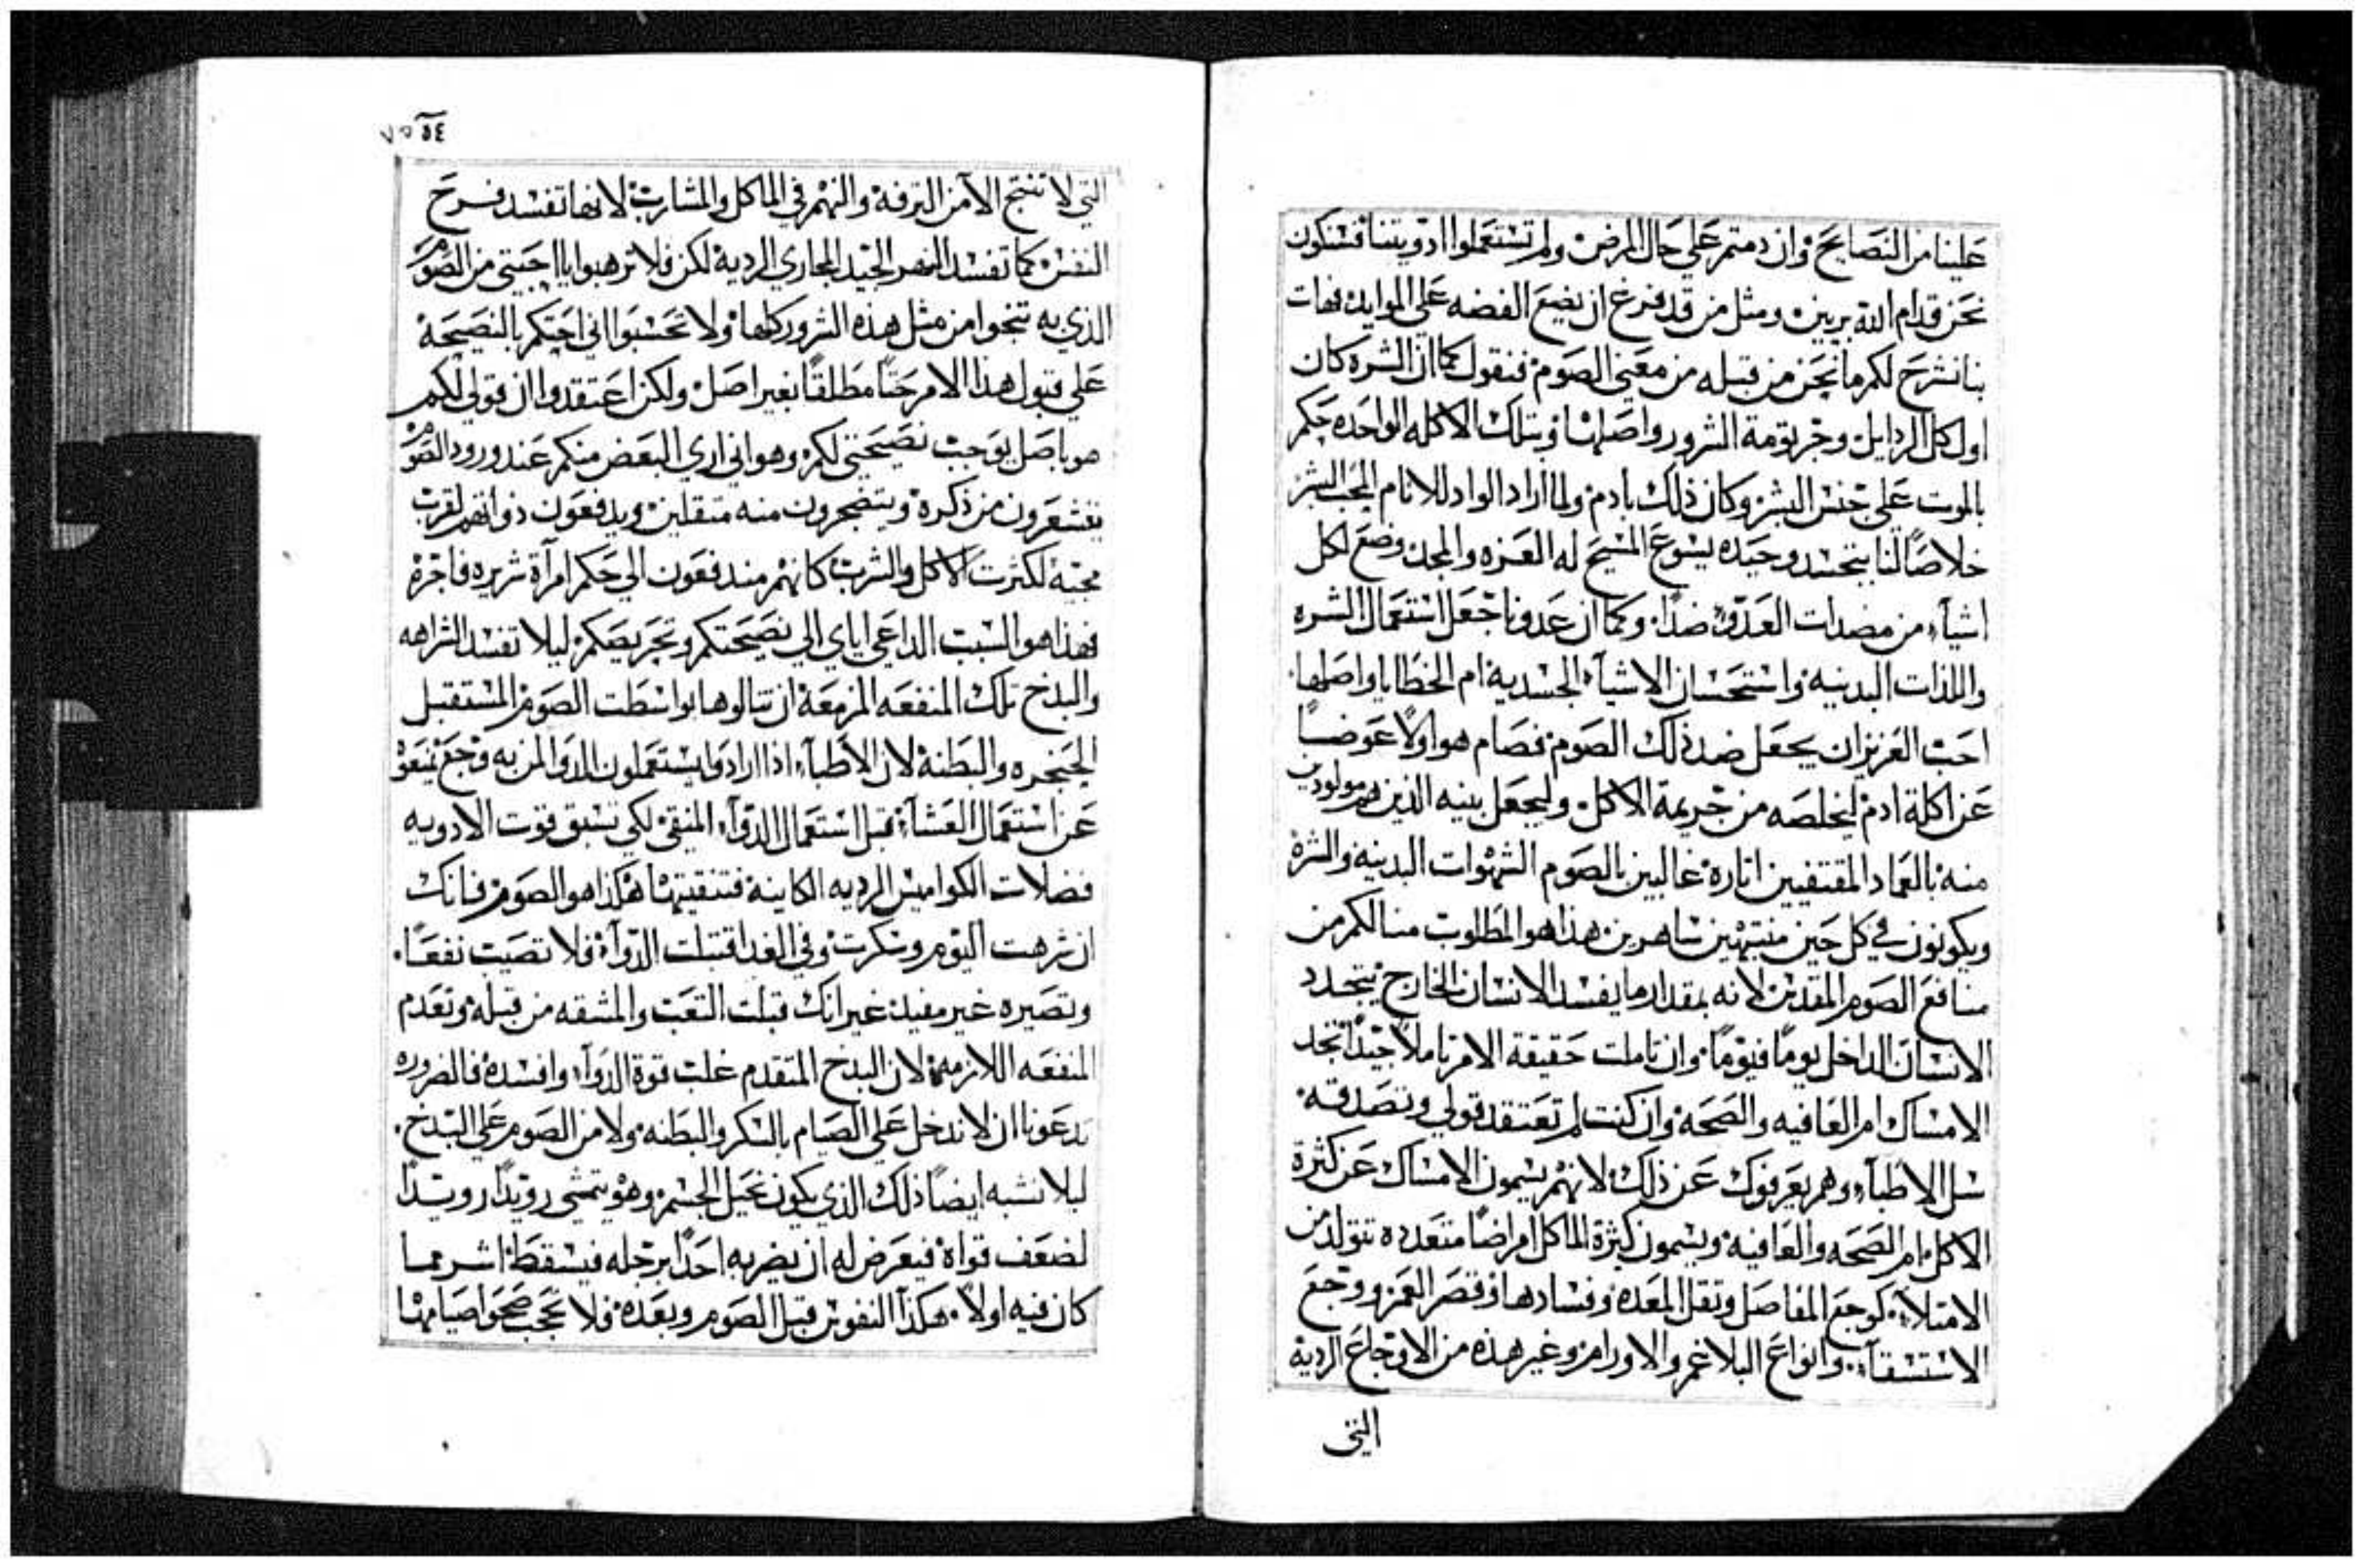 علينا من النصايح وان دمتم علي حال المرض ولم تستعملوا ادويتنا فسنكون
نحن قدام الله بريين ومثل من قد فرغ ان يضع الفضه علي الموايد فهات
بنا نشرح لكم ما نحن من قبله من معني الصوم فنقول كما ان الشره كان
اول كل الردايل وجرثومة الشرور واصلها وبتلك الاكله الواحده حكم
بالموت علي جنس البشر وكان ذلك بادم ولما اراد الواد للانام المحب البشر
خلاصًا لنا بتجسد وحيده يسوع المسيح له العزه والمجد وضع لكل
اشيآء من مضدات العدو ضدًا وكما ان عدونا جعل استعمال الشره
واللذات البدنيه واستحسان الاشيآء الجسديه ام الخطايا واصلها
احب العزيز ان يجعل ضد ذلك الصوم فصام هو اولًا عوضًا
عن اكلة ادم ليخلصه من جريمة الاكل وليجعل بنيه الذين هم مولودين
منه بالعماد المقتفيين اثاره غالبين بالصوم الشهوات البدنيه والشره
ويكونون في كل حين منتبهين ساهرين هذا هو المطلوب منا لكم من
منافع الصوم المقدس لانه بمقدار ما يفسد الانسان الخارج يتجدد
الانسان الداخل يومًا فيومًا وان تاملت حقيقة الامر تاملًا جيدًا تجد
الامساك ام العافيه والصحه وان كنت لم تعتقد قولي وتصدقه
سل الاطبآء وهم يعرفوك عن ذلك لانهم يسمون الامساك عن كثرة
الاكل ام الصحه والعافيه ويسمون كثرة الماكل امراضًا متعدده تتولد من
الامتلآء كوجع المفاصل وثقل المعده وفسادها وقصر العمر ووجع
الاستسقآء وانواع البلاغم والاورام وغير هذه من الاوجاع الرديه
التي
٥٤
التي لا تنتج الا من الترفه والنهم في الماكل والمشارب لانها تفسد فرح
النفس كما تفسد النهر الجيد المجاري الرديه لكن فلا ترهبوا يا احبتي من الصوم
الذي به تنجوا من مثل هذه الشرور كلها ولا تحسبوا اني احثكم بالنصيحه
علي قبول هذا الامر حثًا مطلقًا بغير اصل ولكن اعتقدوا ان قولي لكم
هو باصل يوجب نصيحتي لكم وهو اني اري البعض منكم عند ورود الصوم
يقشعرون من ذكره ويتضجرون منه متقلين ويدفعون ذواتهم لقرب
مجيه لكثرت الاكل والشرب كانهم مندفعون الي حكم امرآة شريره فاجره
فهذا هو السبب الداعي اياي الي نصيحتكم وتحريصكم ليلا تفسد الشراهه
والبدخ تلك المنفعه المزمعه ان تنالوها بواسطت الصوم المستقبل
الحنجره والبطنه لان الاطبآء اذا ارادوا يستعملون الدوا لمن به وجع يمنعوه
عن استعمال العشآء قبل استعمال الدوآء المنقي لكي تسبق قوت الادويه
فضلات الكواميس الرديه الكاينه فتنقيتها هكذا هو الصوم فانك
ان شرهت اليوم وسكرت وفي الغد اقتبلت الدوآء فلا تصيب نفعًا
وتصيره غير مفيد غير انك قبلت التعب والمشقه من قبله وتعدم
المنفعه اللازمه لان البدخ المتقدم غلب قوة الدوآء وافسده فالضروره
تدعونا ان لا ندخل علي الصيام بالسكر والبطنه ولا من الصوم علي البدخ
ليلا نشبه ايضًا ذلك الذي يكون نحيل الجسم وهو يتمشي رويدًا رويدًا
لضعف قواه فيعرض له ان يضربه احدًا برجله فيسقط اشر مما
كان فيه اولًا هكذا النفوس قبل الصوم وبعده فلا عجب صحوا صيامها